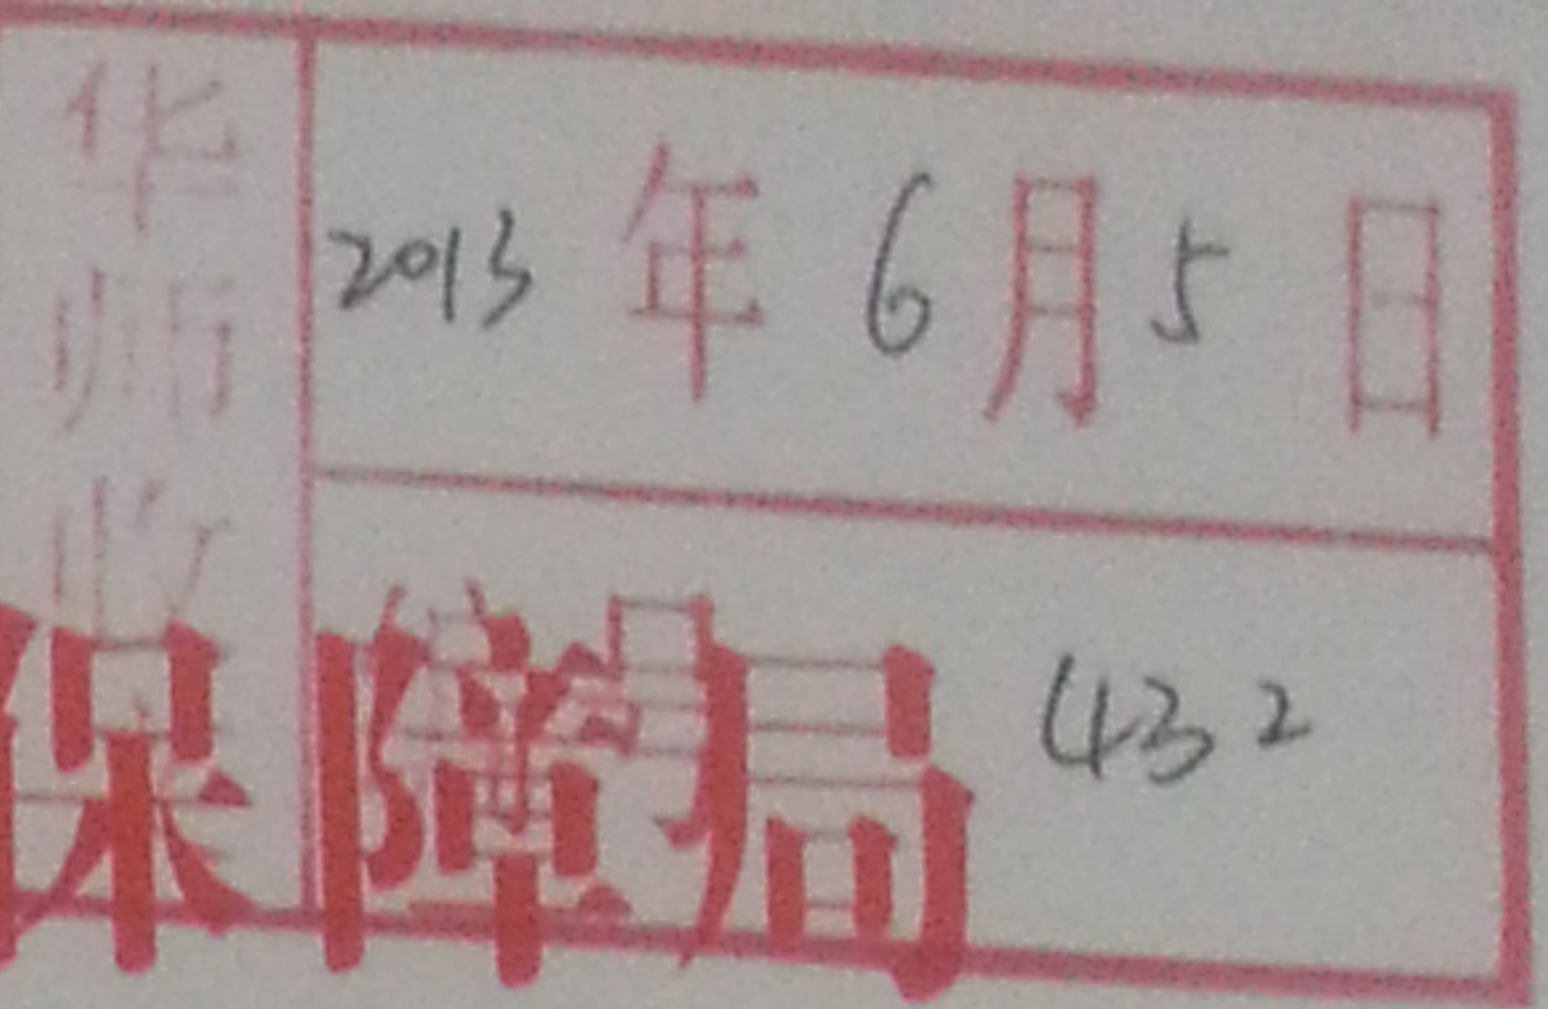 华
师
2013年6月5日
第号 432
保障局